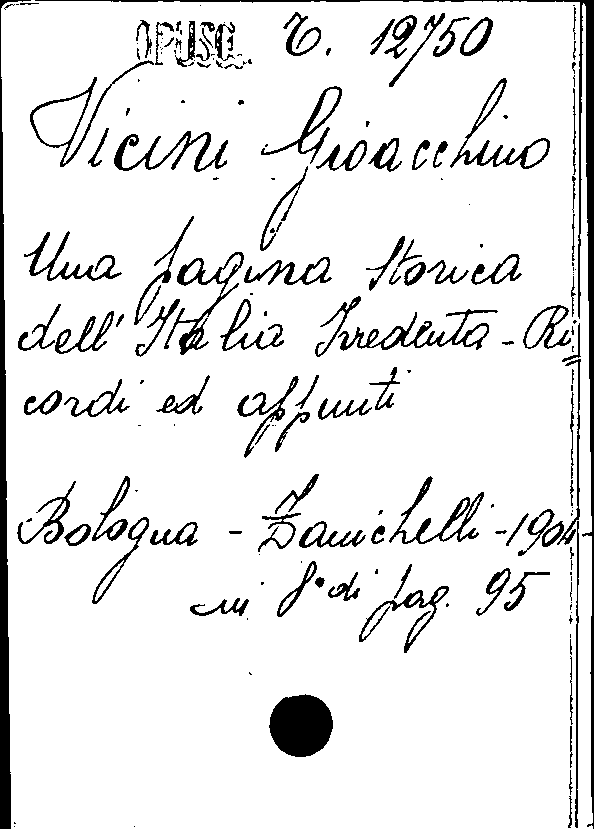 OPUSC. T. 12750
Vicini Gioacchino
Una pagina storica
dell' Italia Irredenta - Ri
cordi ed appunti
Bologna - Zanichelli - 1904 -
in 8° di pag. 95